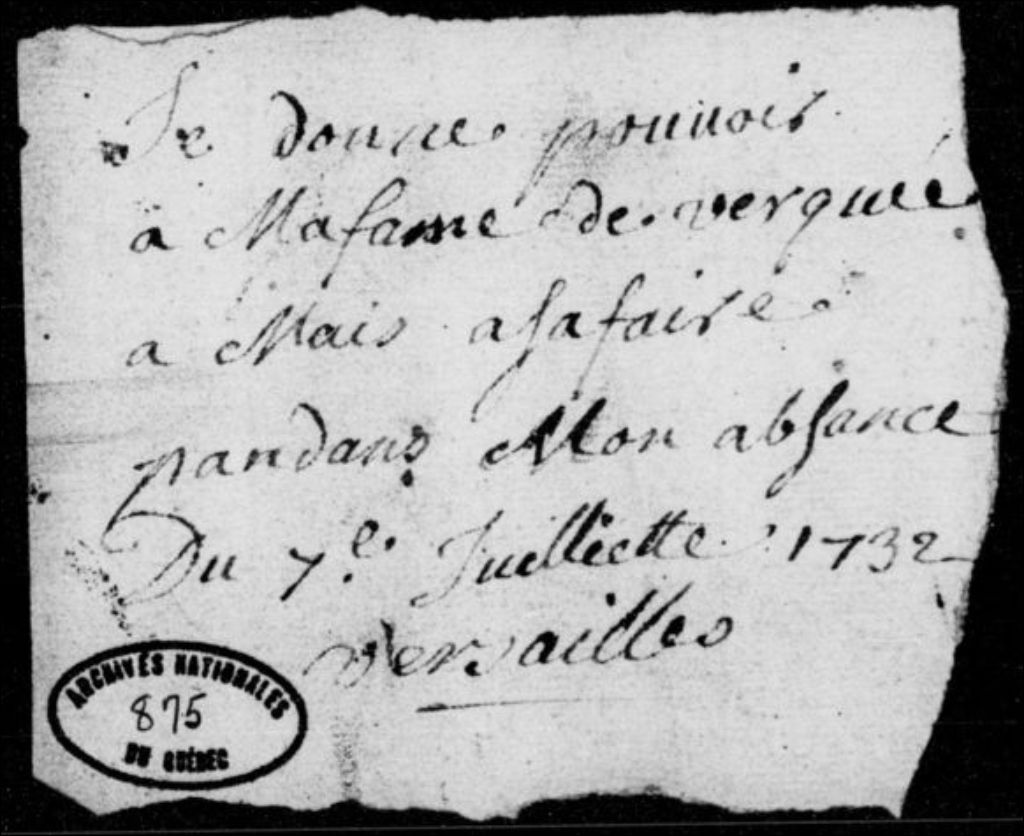 Je donne pouuoir
a Mafame de verquié
a Mais afafaire
pandans Mon absance
Du 7e. Juilliette 1732
versailles
ARCHIVES NATIONALES
875
DU QUÉBEC